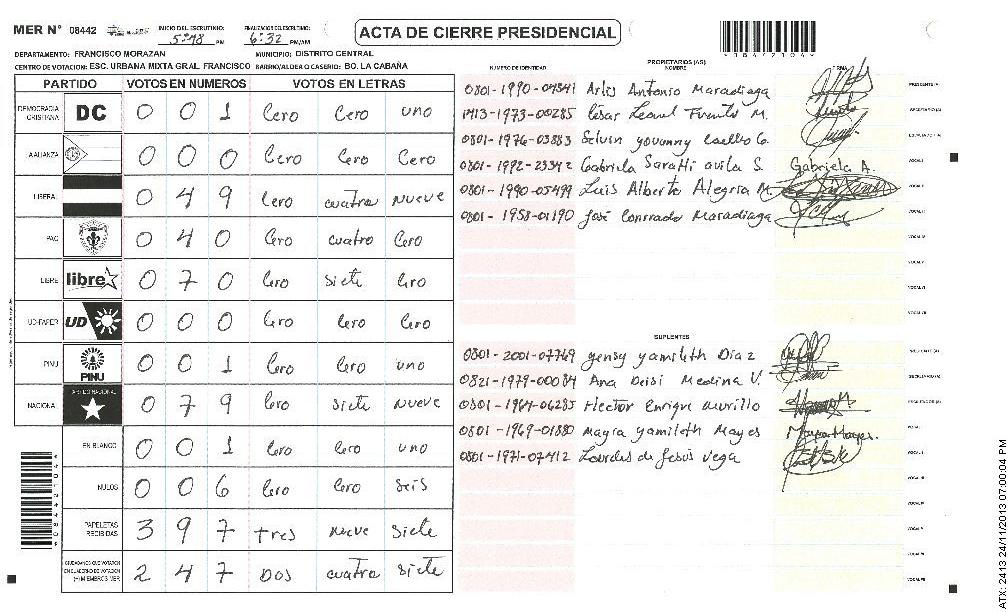 MER N° 08442 INICIO DEL ESCRUTINIO: 5:48 PM FINALIZACION DEL ESCRUTINIO: 6:32 PM/AM
ACTA DE CIERRE PRESIDENCIAL
DEPARTAMENTO: FRANCISCO MORAZAN MUNICIPIO: DISTRITO CENTRAL
CENTRO DE VOTACION: ESC. URBANA MIXTA GRAL. FRANCISCO BARRIO/ALDEA O CASERIO: BO. LA CABAÑA
PARTIDO VOTOS EN NUMEROS VOTOS EN LETRAS
DEMOCRACIA CRISTIANA DC 0 0 1 Cero Cero uno
AALIANZA 0 0 0 Cero Cero Cero
LIBERAL 0 4 9 Cero cuatro nueve
PAC 0 4 0 Cero cuatro Cero
LIBRE libre 0 7 0 Cero siete Cero
UD-FAPER UD 0 0 0 Cero Cero Cero
PINU PINU 0 0 1 Cero Cero uno
NACIONAL PARTIDO NACIONAL 0 7 9 Cero siete nueve
EN BLANCO 0 0 1 Cero Cero uno
NULOS 0 0 6 Cero Cero seis
PAPELETAS RECIBIDAS 3 9 7 tres nueve siete
CIUDADANOS QUE VOTARON EN CUADERNO DE VOTACION (+) MIEMBROS MER 2 4 7 DOS cuatro siete
PROPIETARIOS (AS)
NUMERO DE IDENTIDAD NOMBRE FIRMA
0801-1990-04541 Arlis Antonio Maradiaga PRESIDENTE (A)
César Leonel Fuentes M. SECRETARIO (A)
0801-1976-03883 Selvin yovanny Coello G. ESCRUTADOR (A)
0801-1992-23342 Gabriela Saratti avila S. Gabriela A. VOCAL I
0801-1990-05499 Luis Alberto Alegria M. VOCAL II
0801-1958-01190 José Conrrado Maradiaga VOCAL III
VOCAL IV
VOCAL V
VOCAL VI
VOCAL VII
SUPLENTES
0801-2001-07769 yensy yamileth Diaz PRESIDENTE (A)
0821-1979-00084 Ana Deisi Medina V. SECRETARIO (A)
0801-1964-06285 Hector Enrique Murillo ESCRUTADOR (A)
0801-1969-01880 Mayra yamileth Mayes Mayra Mayes. VOCAL I
0801-1971-07412 Lourdes de Jesús Vega VOCAL II
VOCAL III
VOCAL IV
VOCAL V
VOCAL VI
VOCAL VII
ATX: 2413 24/11/2013 07:00:04 PM